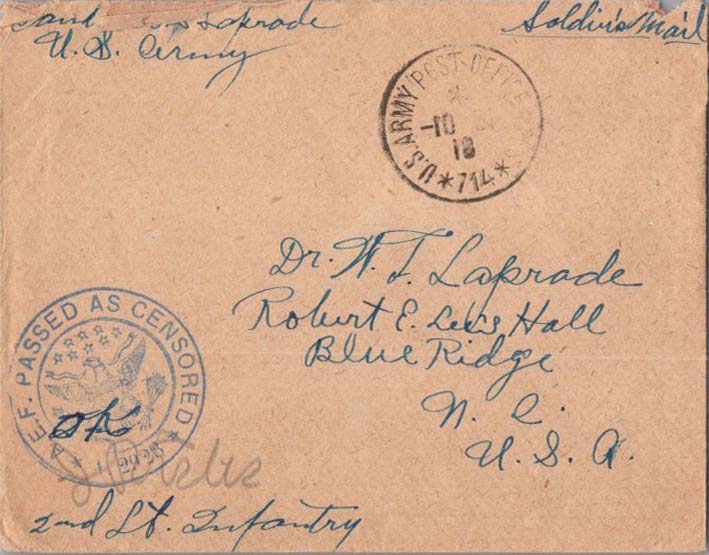 Laprade
U. S. Army
Soldier's Mail
U.S. ARMY POST OFFICE
-10
18
*714*
Dr. W. T. Laprade
Robert E. Lee's Hall
Blue Ridge
N. C.
U. S. A.
A.E.F. PASSED AS CENSORED
OK
2nd Lt. Infantry